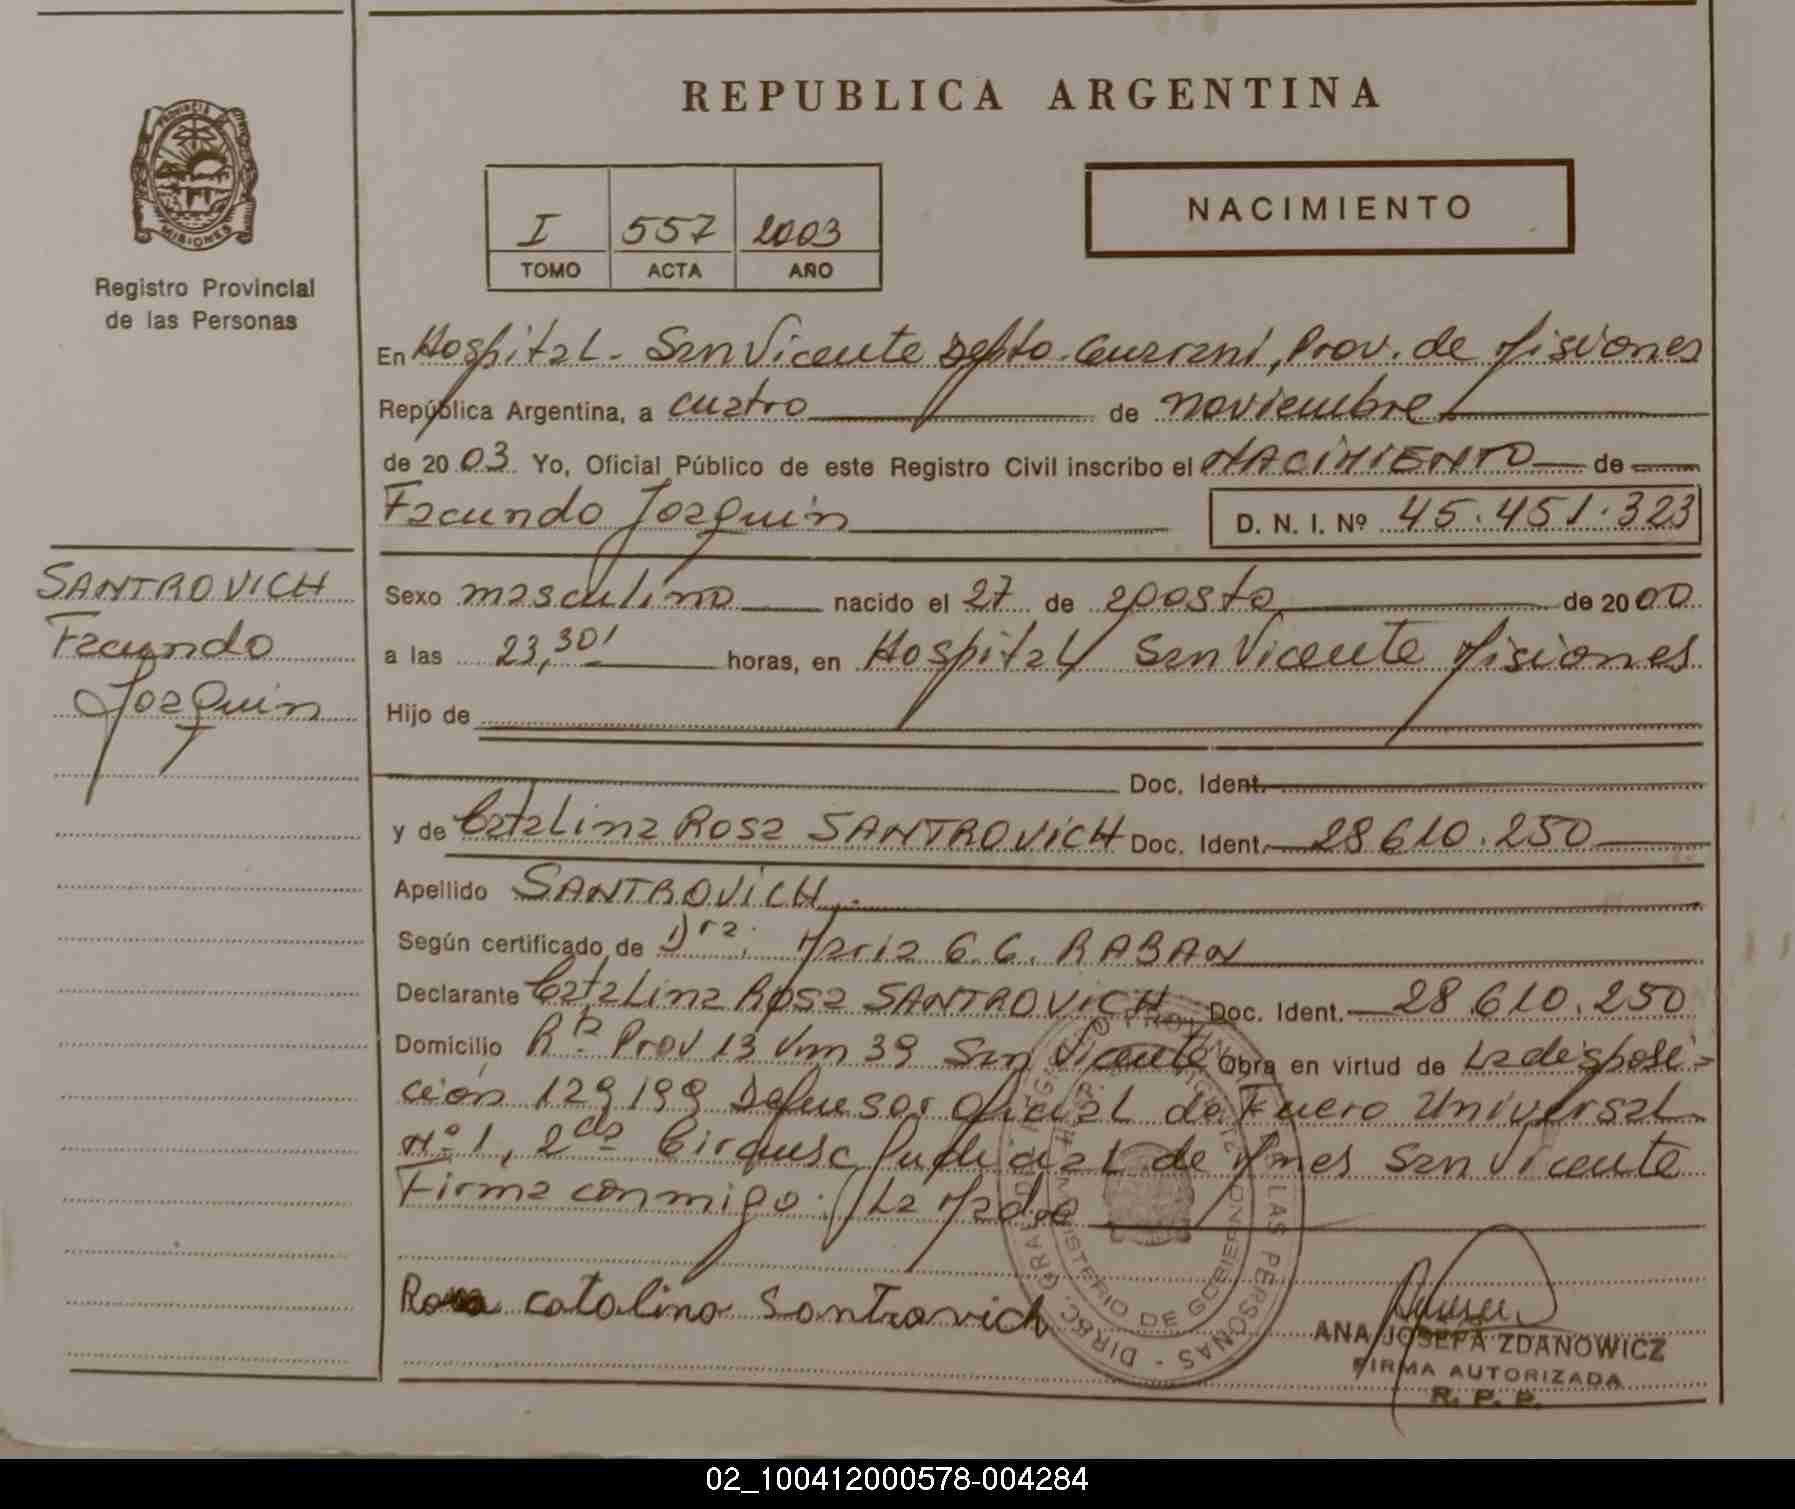 REPUBLICA ARGENTINA
PROVINCIA DE
MISIONES
Registro Provincial
de las Personas
I 557 2003
TOMO ACTA AÑO
NACIMIENTO
En Hospital - San Vicente Depto. Guarani, Prov. de Misiones
República Argentina, a cuatro de noviembre
de 2003 Yo, Oficial Público de este Registro Civil inscribo el NACIMIENTO de
Facundo Joaquin D. N. I. Nº 45.451.323
SANTROVICH
Facundo
Joaquin
Sexo masculino nacido el 27 de agosto de 2000
a las 23,30' horas, en Hospital San Vicente Misiones
Hijo de
Doc. Ident.
y de Catalina Rosa SANTROVICH Doc. Ident. 28610.250
Apellido SANTROVICH.
Según certificado de Dra. Maria G. G. RABAN
Declarante Catalina Rosa SANTROVICH Doc. Ident. 28.610.250
Domicilio Rta. Prov 13 km 39 San Vicente Obra en virtud de La disposi-
ción 129199 Defensor Oficial de Fuero Universal
Nº 1, 2da Judicial de Mnes San Vicente
Firma conmigo: La Madre
Rosa catalina Santrovich
ANA JOSEFA ZDANOWICZ
FIRMA AUTORIZADA
R. P. P.
MINISTERIO DE GOBIERNO
DIREC. GRAL. DE LAS PERSONAS
02_100412000578-004284